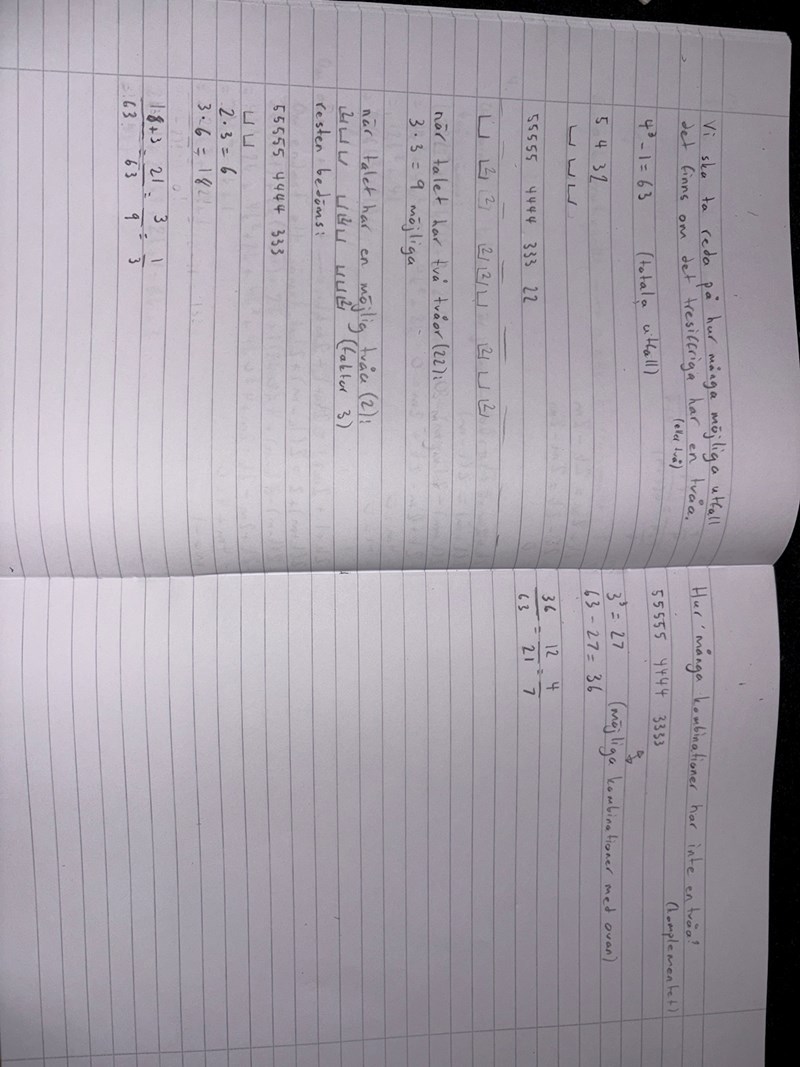 Vi ska ta reda på hur många möjliga utfall
det finns om det tresiffriga har en tvåa.
(eller två)
4³ - 1 = 63 (totala utfall)
5 4 3 2
55555 4444 333 22
2 2 2 2 2 2
när talet har två tvåor (22):
3 · 3 = 9 möjliga
när talet har en möjlig tvåa (2):
2 2 2 (faktor 3)
resten bedöms:
55555 4444 333
2 · 3 = 6
3 · 6 = 18
18+3/63 = 21/63 = 3/9 = 1/3
Hur många kombinationer har inte en tvåa?
(komplementet)
55555 4444 3333
3³ = 27 (möjliga kombinationer med ovan)
63 - 27 = 36
36/63 = 12/21 = 4/7